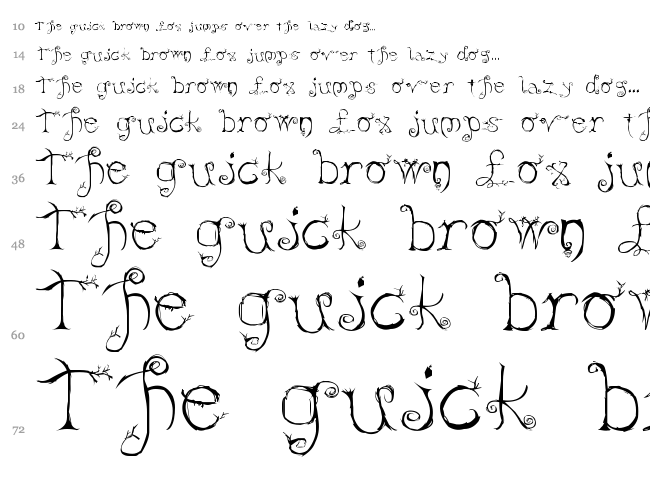 10 The quick brown fox jumps over the lazy dog...
14 The quick brown fox jumps over the lazy dog...
18 The quick brown fox jumps over the lazy dog...
24 The quick brown fox jumps over th
36 The quick brown fox jum
48 The quick brown f
60 The quick brow
72 The quick br